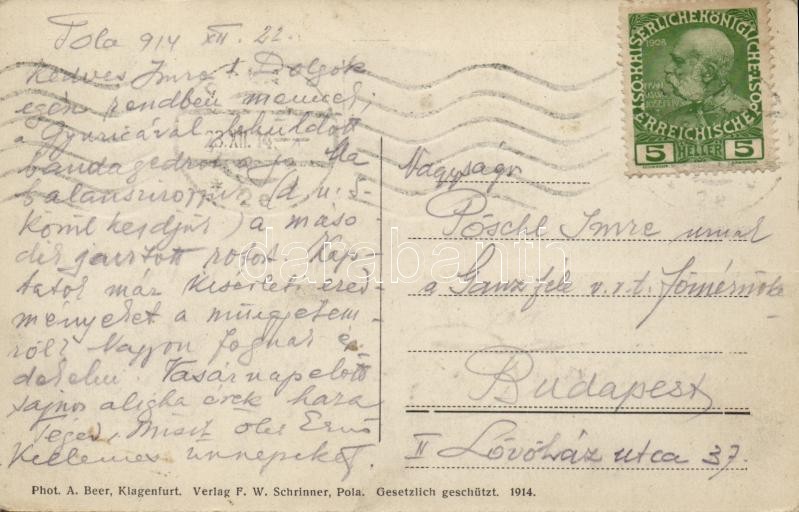 Pola 914 XII. 22.
Kedves Imre! Dolgok
egén rendben mennek,
a Gyuricával leküldött
23.XII.14
bandagedrot a jó. Ma
balanszuroztuk (d. u. 5-
kor kezdjük) a máso-
dik javított rotort. Kap-
tatok már kisérleti ered-
ményeket a műegyetem-
ről? Nagyon fognak é-
dekelni. Vasárnap előtt
sajnos aligha érek haza
Téged, Miszt ölel Ernő
Kellemes ünnepeket.
Nagyságo
Pöschl Imre urnak
a Ganz féle v. r. t. főmérnöke
Budapest
II Lövőház utca 37.
KAISERLICHE KÖNIGLICHE
ÖSTERREICHISCHE
1908
5 HELLER 5
darabanth
Phot. A. Beer, Klagenfurt. Verlag F. W. Schrinner, Pola. Gesetzlich geschützt. 1914.